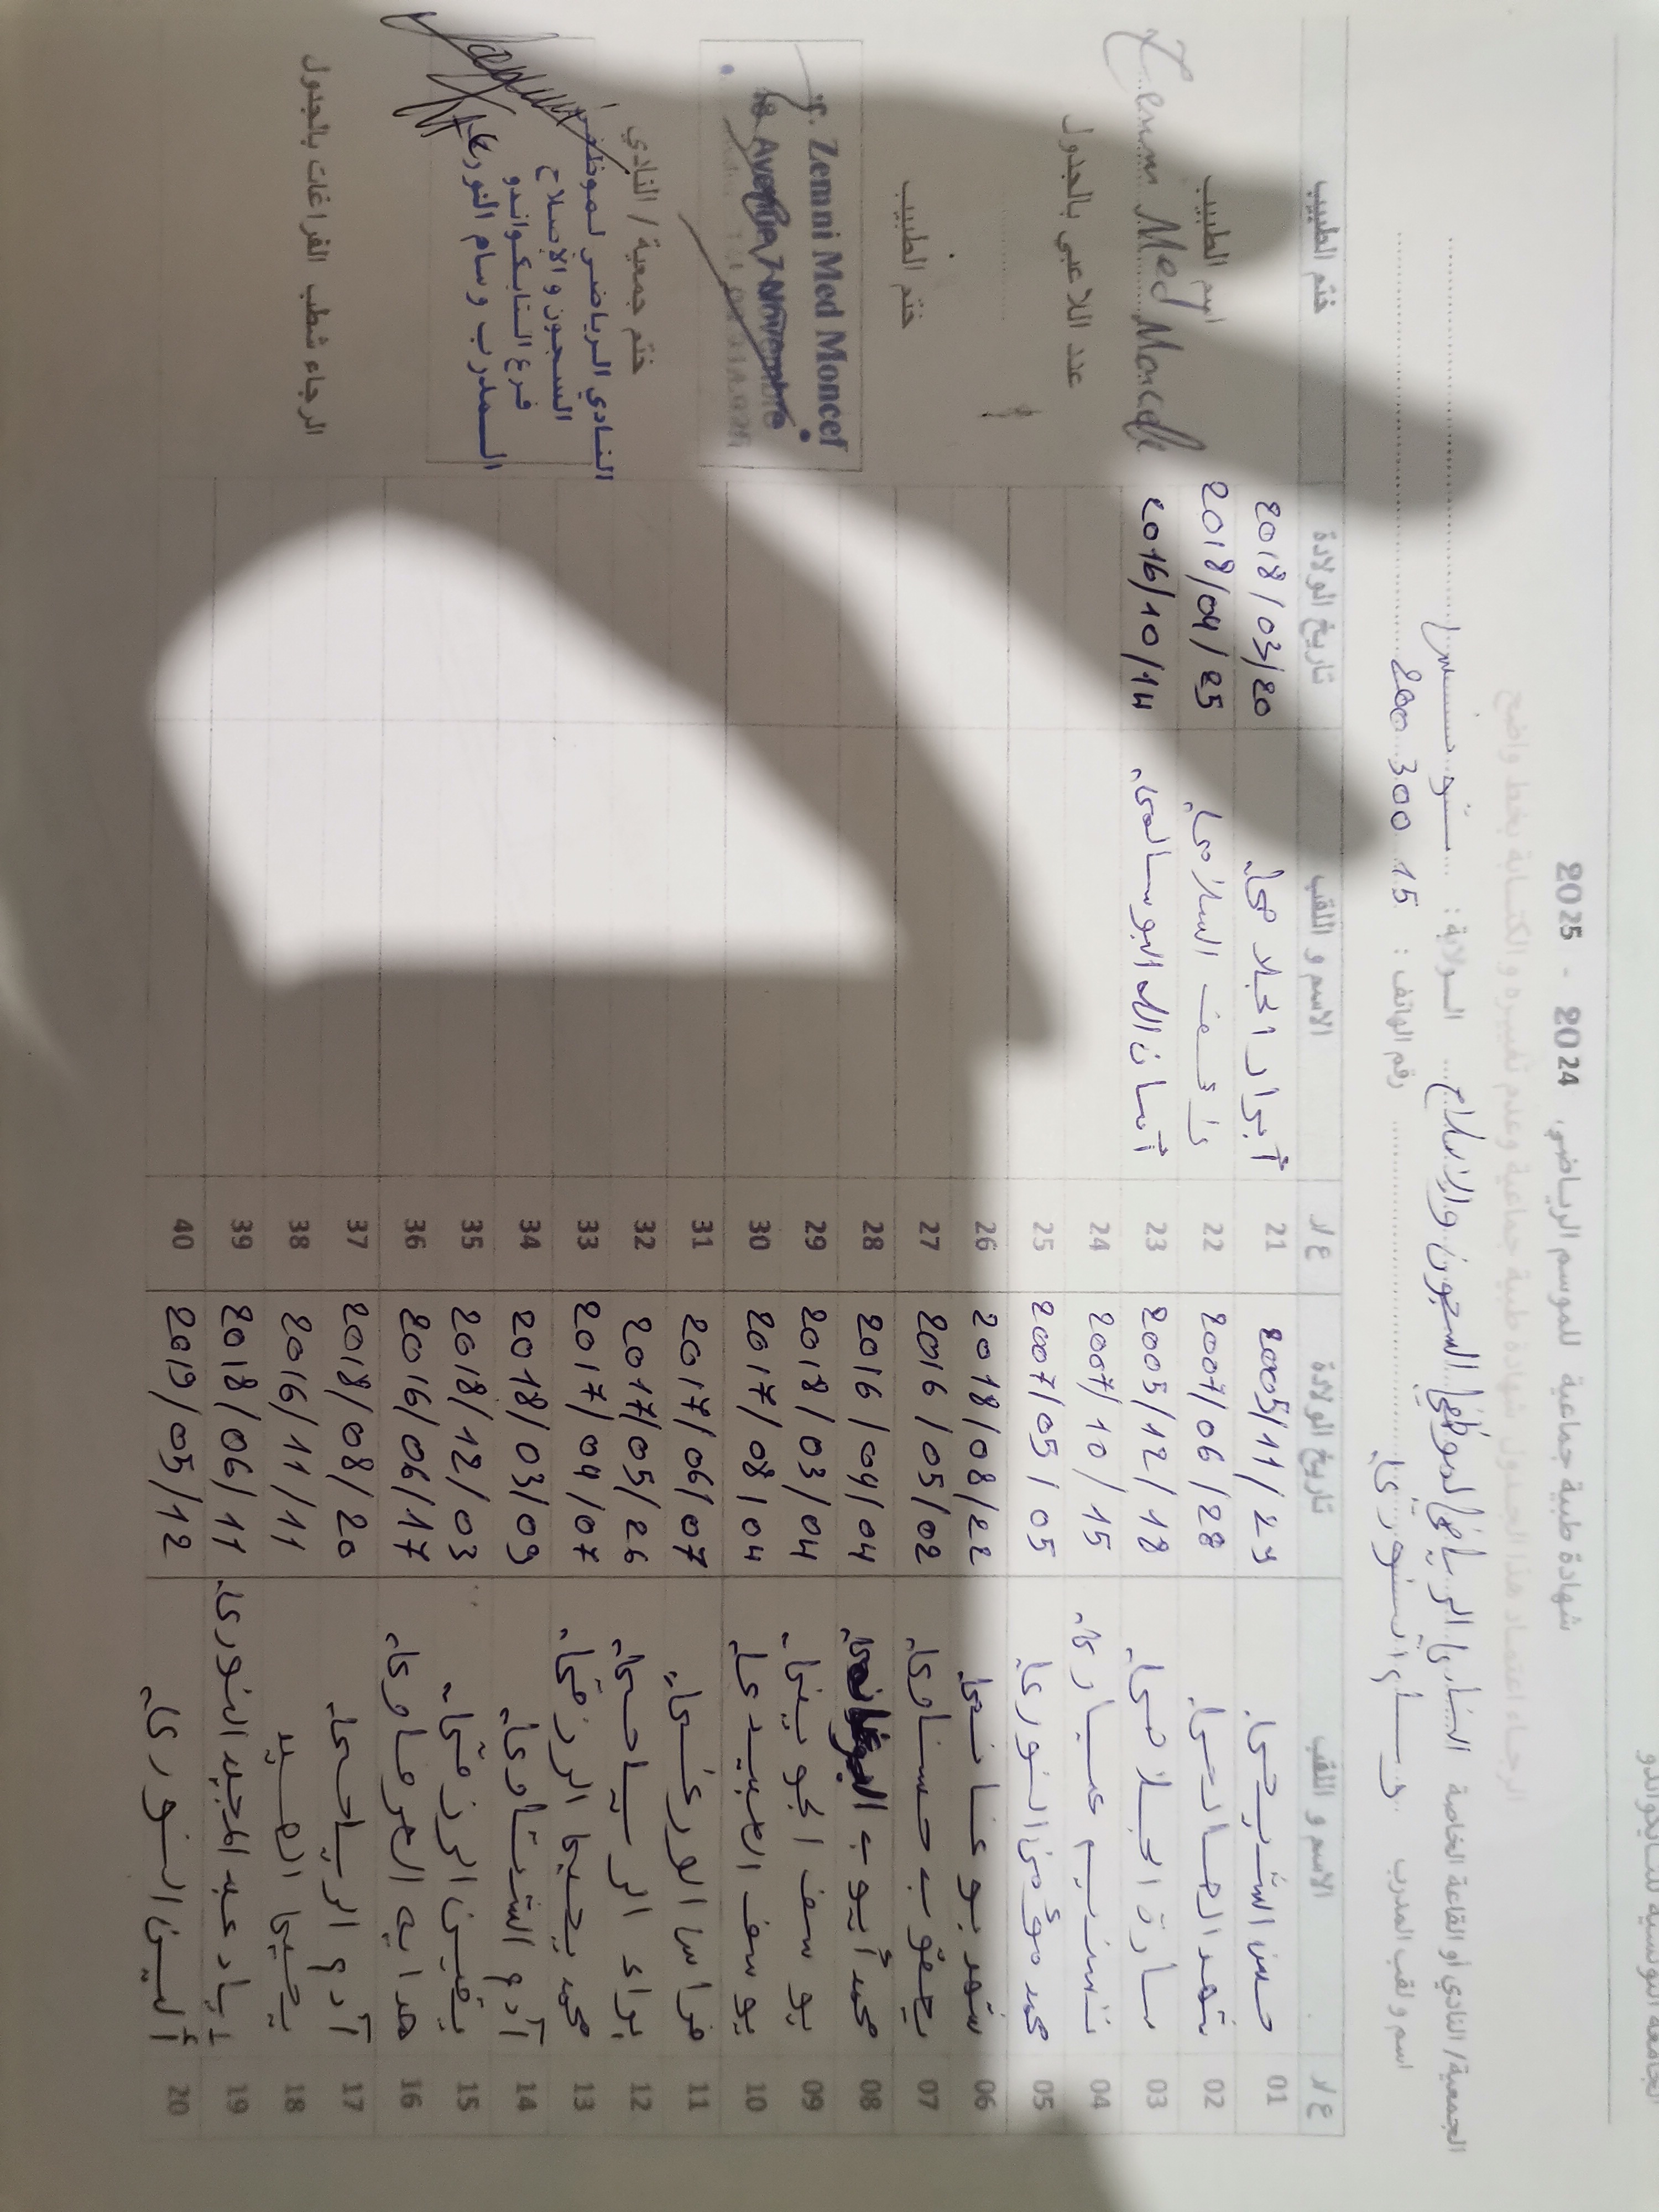 شهادة طبية جماعية للموسم الرياضي 2024 - 2025
الرجاء اعتماد هذا الجدول شهادة طبية جماعية وعدم تغييره والكتابة بخط واضح
الجمعية/ النادي أو القاعة الخاصة النادي الرياضي لموظفي السجون والإصلاح الولاية : تونس
اسم و لقب المدرب وسام النوري رقم الهاتف : 15 300 200
ع / د الاسم و اللقب تاريخ الولادة ع / د الاسم و اللقب تاريخ الولادة ختم الطبيب
01 حسن الشريحي 2005/11/29 21 أبرار الجلاصي 2018/03/20
02 شهد الصالحي 2007/06/28 22 السلامي 2018/04/25 اسم الطبيب
03 سارة الجلاصي 2005/12/18 23 2016/10/14 Zemni Med Moncef
04 تسنيم عياري 2007/10/15 24 عدد اللاعبي بالجدول
05 محمد مؤمن النوري 2007/05/05 25
06 شهد بوعنان 2018/08/22 26
07 يعقوب حسناوي 2016/05/02 27 ختم الطبيب
08 محمد أيوب 2016/04/04 28 Dr. Zemni Med Moncef
09 يوسف الجويني 2018/03/04 29 Avenue 7 Novembre
10 يوسف العبيدي 2017/08/04 30
11 فراس الورغي 2017/06/07 31
12 براء الرياحي 2017/05/26 32 ختم جمعية / النادي
13 محمد يحيى الرزقي 2017/04/07 33 النادي الرياضي لموظفي
14 آدم الشتاوي 2018/03/09 34 السجون و الإصلاح
15 يقين الرزقي 2018/12/03 35 فرع التايكواندو
16 هداية العرفاوي 2016/06/17 36 المدرب وسام النوري
17 آدم الرياحي 2018/08/20 37
18 يحيى الصيد 2016/11/11 38 الرجاء شطب الفراغات بالجدول
19 إياد عبد المجيد النوري 2018/06/11 39
20 ألين النوري 2019/05/12 40